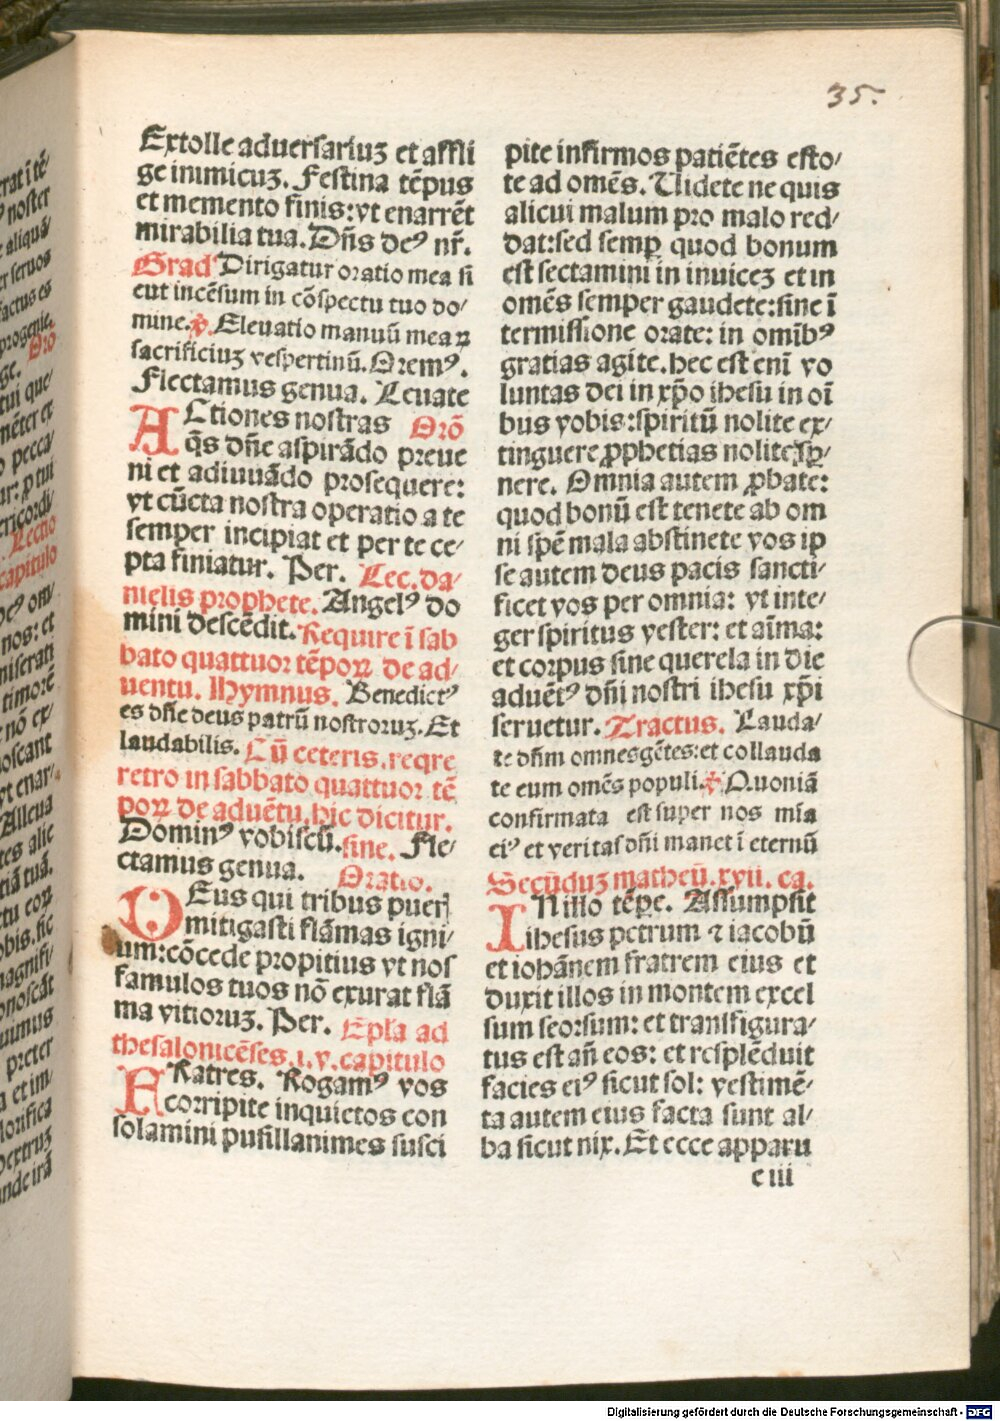 35.
Extolle adversariuʒ et affli
ge inimicuʒ. Festina tēpus
et memento finis: vt enarrēt
mirabilia tua. Dn̄s deꝰ nr̄.
Grad' Dirigatur oratio mea si
cut incēsum in cōspectu tuo do/
mine. ℣. Eleuatio manuū meaꝝ
sacrificiuʒ vespertinū. Oremꝰ.
Flectamus genua. Leuate
ACtiones nostras Orō
q̄s dn̄e aspirādo preue
ni et adiuuādo prosequere:
vt cūcta nostra operatio a te
semper incipiat et per te ce/
pta finiatur. Per. Lec. da/
nielis prophete. Angelꝰ do
mini descēdit. Require ī sab
bato quattuor tēpoꝝ de ad/
uentu. Ihymnus. Benedictꝰ
es dn̄e deus patrū nostroruʒ. Et
laudabilis. Cū ceteris. reqre
retro in sabbato quattuor tē
poꝝ de aduētu. hic dicitur.
Dominꝰ vobiscū. sine. Fle/
ctamus genua. Oratio.
DEus qui tribus pueri
mitigasti flāmas igni/
um: cōcede propitius vt nos
famulos tuos nō exurat flā
ma vitioruʒ. Per. Ep̄la ad
thesalonicēses. i. v. capitulo
FRatres. Rogamꝰ vos
corripite inquietos con
solamini pusillanimes susci
pite infirmos patiētes esto/
te ad omēs. Uidete ne quis
alicui malum pro malo red/
dat: sed semꝑ quod bonum
est sectamini in inuiceʒ et in
omēs semper gaudete: sine ī
termissione orate: in omībꝰ
gratias agite. hec est enī vo
luntas dei in xp̄o ihesu in oī
bus vobis: spiritū nolite ex/
tinguere ꝓphetias nolite sꝑ/
nere. Omnia autem ꝓbate:
quod bonū est tenete ab om
ni spē mala abstinete vos ip
se autem deus pacis sancti/
ficet vos per omnia: vt inte/
ger spiritus vester: et aīma:
et corpus sine querela in die
aduētꝰ dn̄i nostri ihesu xp̄i
seruetur. Tractus. Lauda/
te dn̄m omnes gētes: et collauda
te eum omēs populi. ℣. Quoniā
confirmata est super nos mīa
eiꝰ et veritas dn̄i manet ī eternū
Secūduʒ matheū. xvii. ca.
IN illo tēpe. Assumpsit
ihesus petrum ⁊ iacobū
et iohānem fratrem eius et
duxit illos in montem excel
sum seorsum: et transfigura/
tus est an̄ eos: et resplēduit
facies eiꝰ sicut sol: vestimē/
ta autem eius facta sunt al/
ba sicut nix. Et ecce apparu
e iii
Digitalisierung gefördert durch die Deutsche Forschungsgemeinschaft - DFG